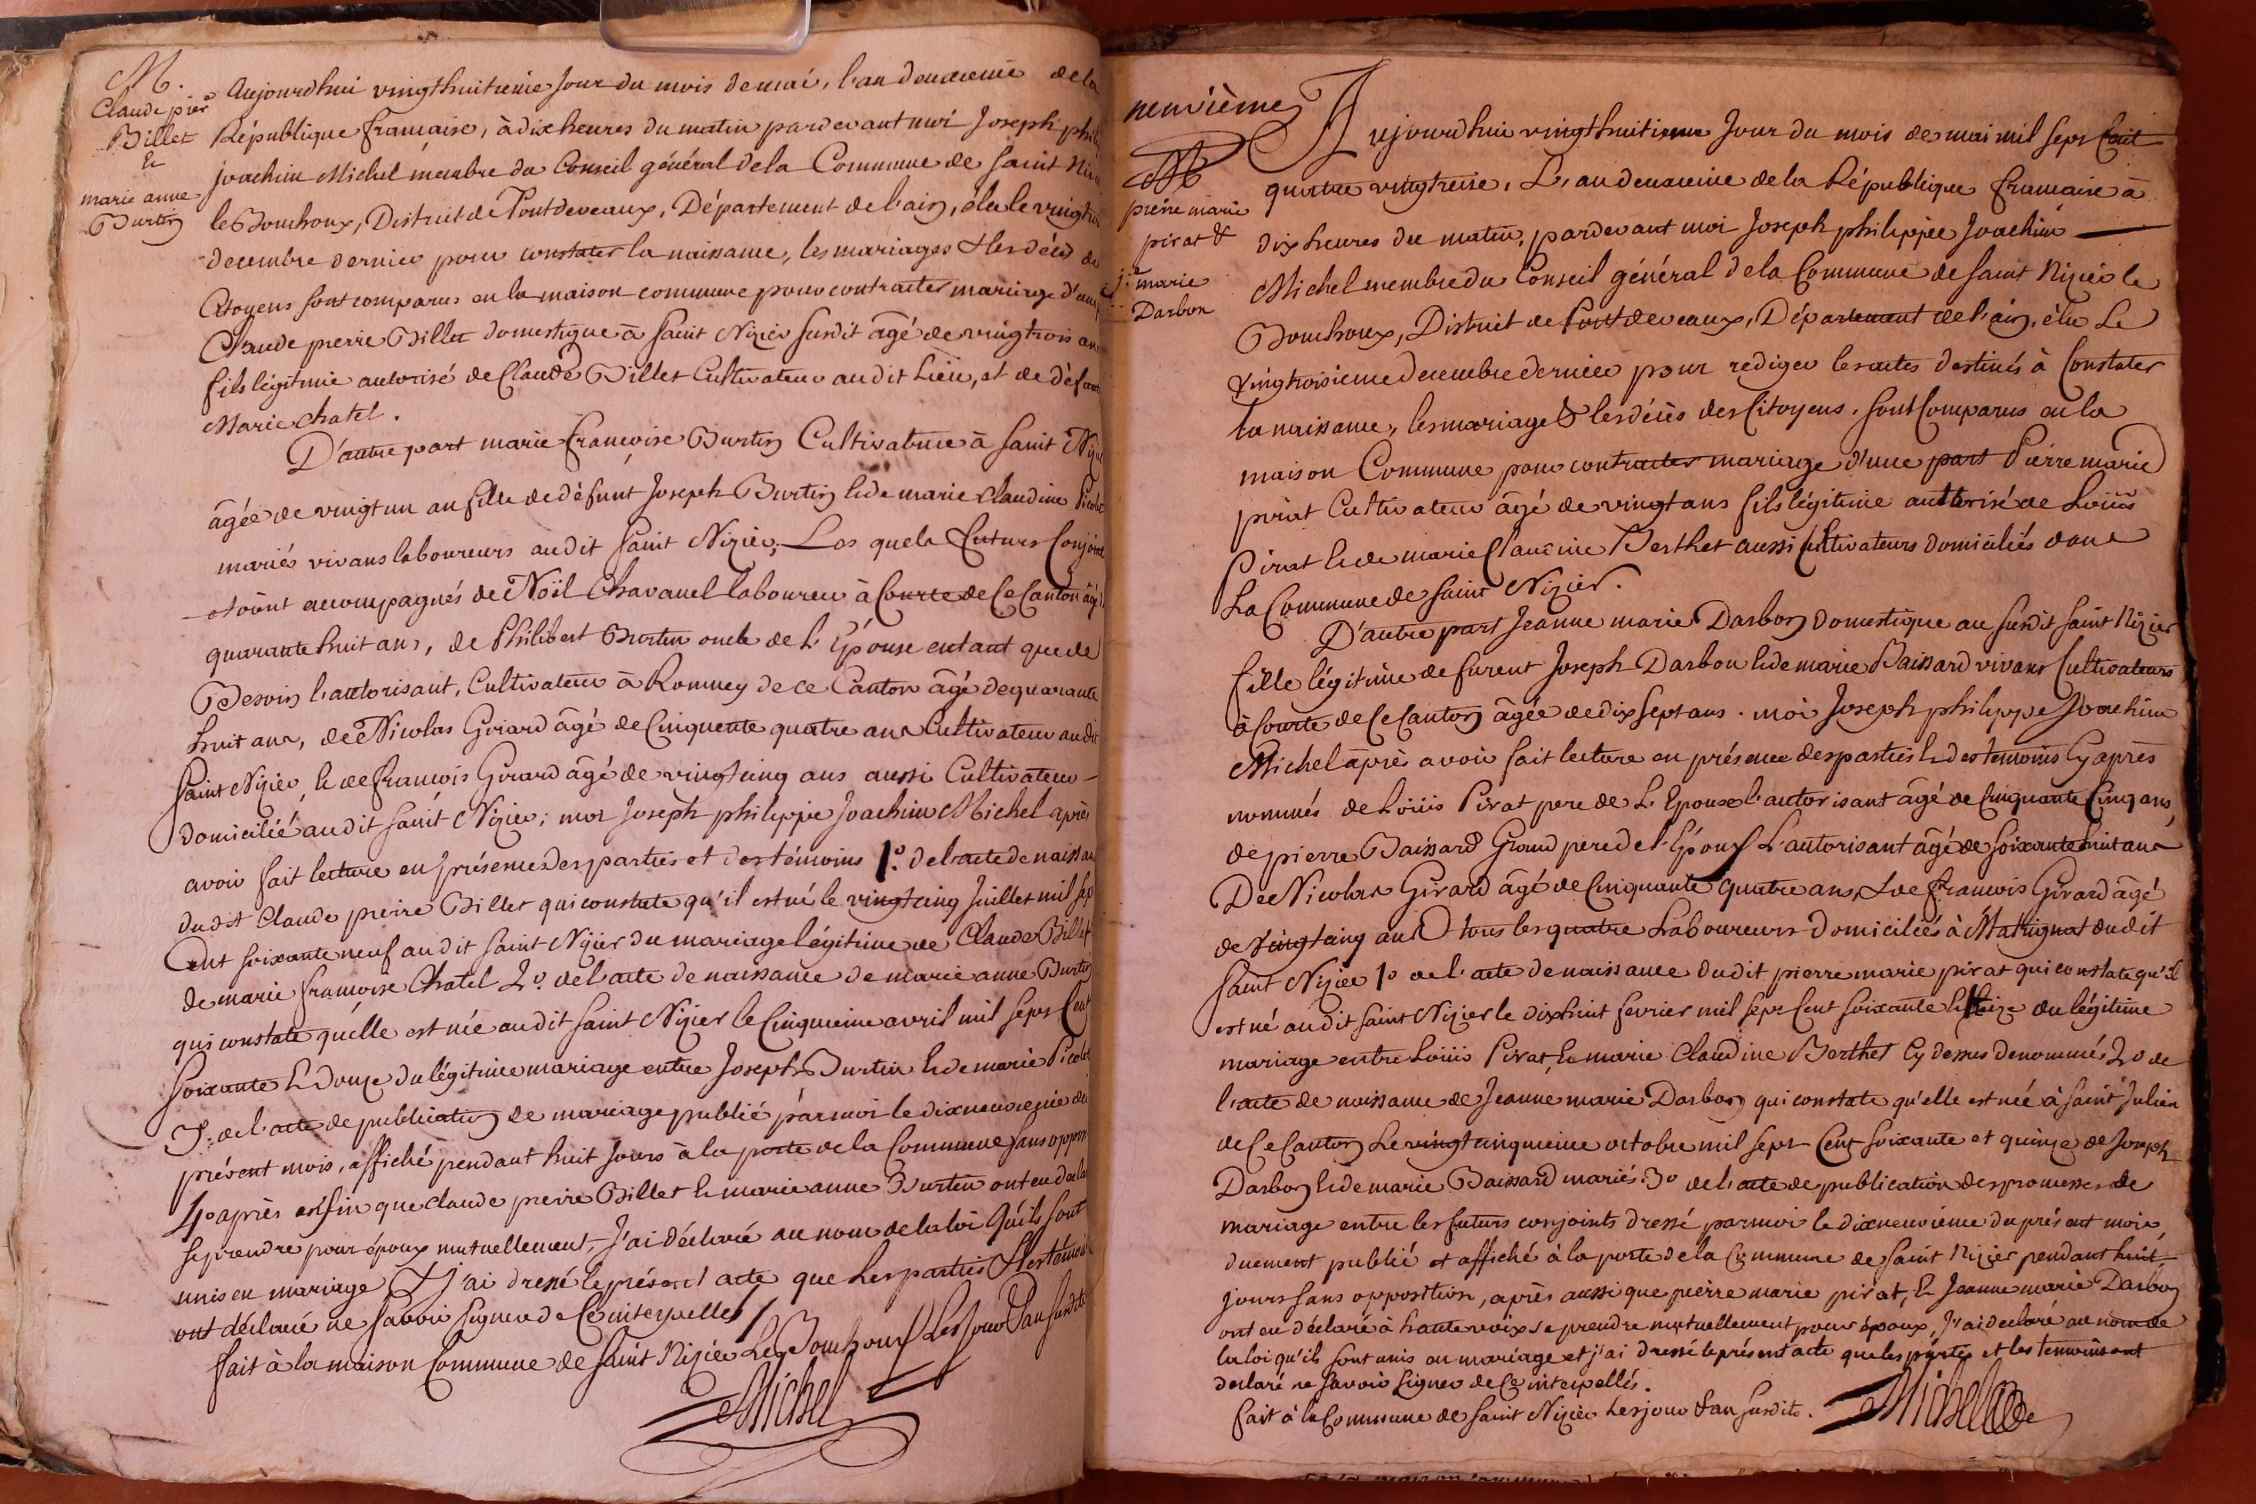 M.
Claude pier
Billet
&
marie anne
Burtin
Aujourdhui vingthuitieme Jour du mois de mai, l'an deuxieme de la
République francaise, à dix heures du matin pardevant moi Joseph phili
joachim Michel membre du Conseil général de la Commune de saint Nizi
le Bouchoux, District de Pontdevaux, Département de l'ain, élu le vingt
decembre dernier pour constater la naissance, les mariages & les décès de
Citoyens sont comparus en la maison commune pour contracter mariage d'une
Claude pierre Billet domestique à saint Nizier susdit âgé de vingt trois an
fils légitime autorisé de Claude Billet Cultivateur au dit Lieu, et de défunt
Marie chatel.
D'autre part marie francoise Burtin Cultivatrice à saint Nizi
âgée de vingt un an fille de défunt Joseph Burtin & de marie Claudine Picolet
mariés vivans laboureurs audit saint Nizier; Los quels futurs Conjoint
étoint accompagnés de Noïl Chavanel laboureur à Courte de Ce Canton âgé
quarante huit ans, de Philibert Burtin oncle de L'Epouse entant que de
Besoin l'autorisant, Cultivateur à Romney de ce Canton âgé de quarante
huit ans, de Nicolas Girard âgé de Cinquante quatre ans Cultivateur audit
saint Nizier, & de francois Girard âgé de vingt cinq ans aussi Cultivateur
domicilié audit saint Nizier; moi Joseph philippe Joachim Michel après
avoir fait lecture en présence des parties et des témoins 1.° de l'acte de naissan
dudit Claude pierre Billet qui constate qu'il est né le vingt cinq Juillet mil sep
Cent soixante neuf audit saint Nizier du mariage légitime de Claude Billet
de marie francoise Chatel 2.° de l'acte de naissance de marie anne Burtin
qui constate quélle est née audit saint Nizier le Cinquieme avril mil sept Cent
soixante & Douze du légitime mariage entre Joseph Burtin & de marie Picolet
3.° de l'acte de publication de mariage publié par moi le dixneuvieme du
présent mois, affiché pendant huit Jours à la porte de la Commune sans opposi
4.° après enfin que claude pierre Billet & marie anne Burtin ont eu déclar
se prendre pour époux mutuellement, J'ai déclaré au nom de la loi Qu'ils sont
unis en mariage & j'ai dressé le présent acte que Les parties & les témoins
ont déclaré ne savoir signer de Ce interpellés /
fait à la maison Commune de saint Nizier Le Bouchoux Les Jour & an susdits
Michel
neuvième
M
pierre marie
pirat &
j. marie
Darbon
Aujourdhui vingthuitieme Jour du mois de mai mil sept Cent
quatre vingt treize, L'an deuxieme de la République francaise à
dix heures du matin, pardevant moi Joseph philippe Joachim
Michel membre du Conseil général de la Commune de saint Nizier le
Bouchoux, District de Pont devaux, Département de l'ain, élu Le
vingtroisieme decembre dernier pour rediger les actes destinés à Constater
la naissance, les mariage & les décès des Citoyens. sont Comparus en la
maison Commune pour contracter mariage d'une part Pierre marie
pirat Cultivateur âgé de vingt ans fils légitime autorisé de Loüis
Pirat & de marie Claudine Berthet aussi Cultivateurs domiciliés dans
La Commune de saint Nizier.
D'autre part Jeanne marie Darbon domestique au susdit saint Nizier
fille légitime de furent Joseph Darbon & de marie Baissard vivans Cultivateurs
à Courte de Ce Canton âgée de dix sept ans. moi Joseph philippe Joachim
Michel après avoir fait lecture en présence des parties & des temoins Cy après
nommés de Loüis Pirat pere de L'Epoux l'autorisant âgé de Cinquante Cinq ans,
de pierre Baissard Grand pere de l'Epouse L'autorisant âgé de soixante huit ans
De Nicolas Girard âgé de Cinquante quatre ans, & de francois Girard âgé
de vingt cinq ans tous les quatre Laboureurs Domiciliés à Matrignat dudit
saint Nizier 1.° de l'acte de naissance dudit pierre marie pirat qui constate qu'il
est né audit saint Nizier le dixhuit fevrier mil sept Cent soixante & treize du légitime
mariage entre Loüis Pirat & marie Claudine Berthet Cy dessus denommés 2.° de
l'acte de naissance de Jeanne marie Darbon qui constate qu'elle est née à saint Julien
de Ce Canton Le vingt cinquieme octobre mil sept Cent soixante et quinze de Joseph
Darbon & de marie Baissard mariés. 3.° de l'acte de publication des promesses de
mariage entre les futurs conjoints dressé par moi le dixneuvième du présent mois,
duement publié et affiché à la porte de la Commune de saint Nizier pendant huit
jours sans opposition, après aussi que pierre marie pirat, & Jeanne marie Darbon
ont eu déclaré à haute voix se prendre mutuellement pour époux, J'ai declaré au nom de
la loi qu'ils sont unis en mariage et j'ai dressé le présent acte que les parties et les temoins ont
declaré ne savoir signer de Ce interpellés.
fait à la Commune de saint Nizier Les jour & an susdits.
Michel